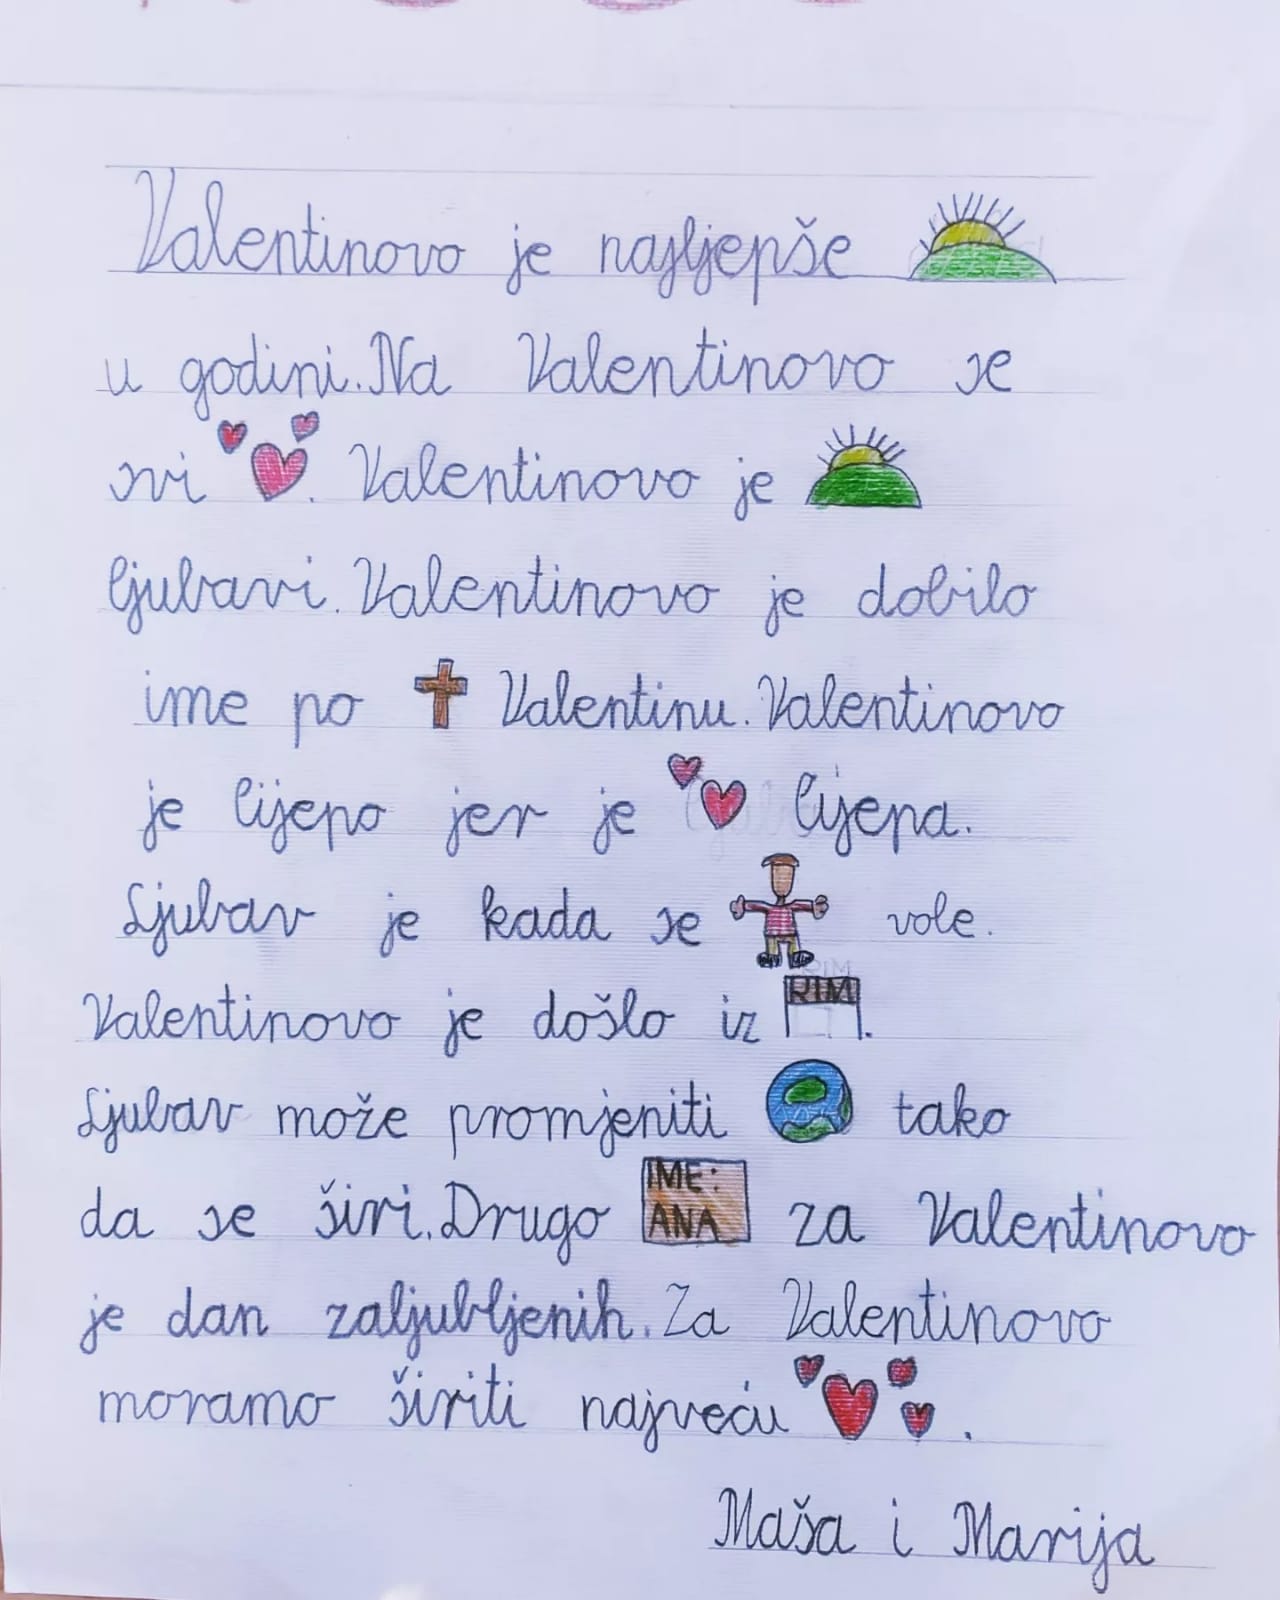 Valentinovo je najljepše
u godini. Na Valentinovo se
svi . Valentinovo je
ljubavi. Valentinovo je dobilo
ime po Valentinu. Valentinovo
je lijepo jer je lijepa.
Ljubav je kada se vole.
Valentinovo je došlo iz RIM.
Ljubav može promjeniti tako
da se širi. Drugo IME: ANA za Valentinovo
je dan zaljubljenih. Za Valentinovo
moramo širiti najveću .
Maša i Marija